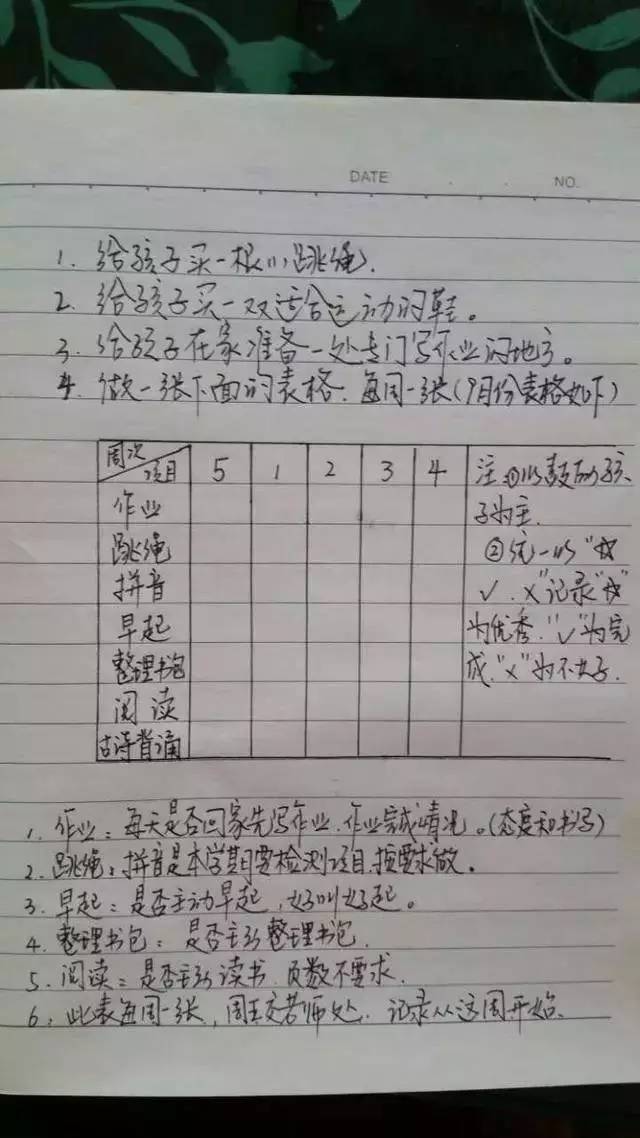 DATE
NO.
1. 给孩子买一根小跳绳.
2. 给孩子买一双适合运动的鞋。
3. 给孩子在家准备一处专门写作业的地方。
4. 做一张下面的表格.每周一张(9月份表格如下)
周次
项目 5 1 2 3 4 注:①以鼓励孩
作业 子为主.
跳绳 ②统一以"☆
拼音 √.×"记录"☆"
早起 为优秀."√"为完
整理书包 成."×"为不太好.
阅读
古诗背诵
1. 作业:每天是否回家先写作业.作业完成情况。(态度和书写)
2. 跳绳:拼音是本学期要检测项目.按要求做。
3. 早起:是否主动早起,好叫好起。
4. 整理书包:是否主动整理书包.
5. 阅读:是否主动读书.页数不要求.
6. 此表每周一张,周五交老师处.记录从这周开始.